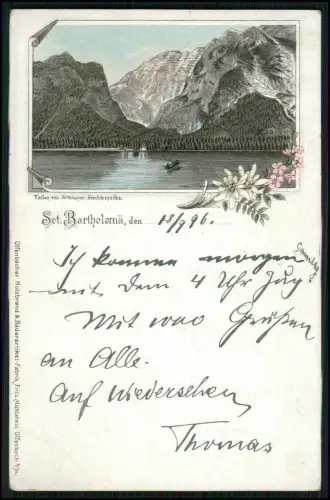 Verlag von Ermisch
Sct. Bartholomä, den 18/9 96.
Ich komme morgen Samstag
mit dem 4 Uhr Zug
Mit 1000 Grüßen
an Alle.
Auf Wiedersehen
Thomas
Offenbacher Holzbrand & Baderartikel-Fabrik, Fritz Mühlstein, Offenbach a/M.